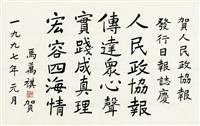 賀人民政協報
發行日報誌慶
人民政協報
傳達眾心聲
實踐成真理
宏容四海情
馬萬祺賀
一九九七年元月